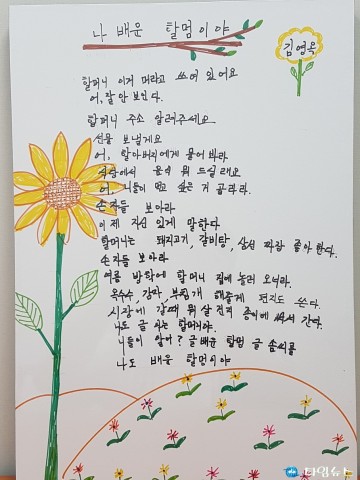 나 배운 할멈이야
김영옥
할머니 이거 뭐라고 쓰여 있어요
어, 잘 안 보인다.
할머니 주소 알려주세요
선물 보낼게요
어, 할아버지에게 물어봐라
식당에서 음식 뭐 드실래요
어, 니들이 먹고 싶은 거 골라라.
손자들 보아라
이제 자신 있게 말한다
할머니는 돼지고기, 갈비탕, 삼선 짜장 좋아한다.
손자들 보아라
여름 방학에 할머니 집에 놀러 오너라.
옥수수, 감자, 부침개 해줄게 편지도 쓴다.
시장에 갈때 뭐 살 건지 종이에 써서 간다.
나도 글 아는 할머니다.
니들이 알어? 글 배운 할멈 글 솜씨를
나도 배운 할멈이야
타임뉴스